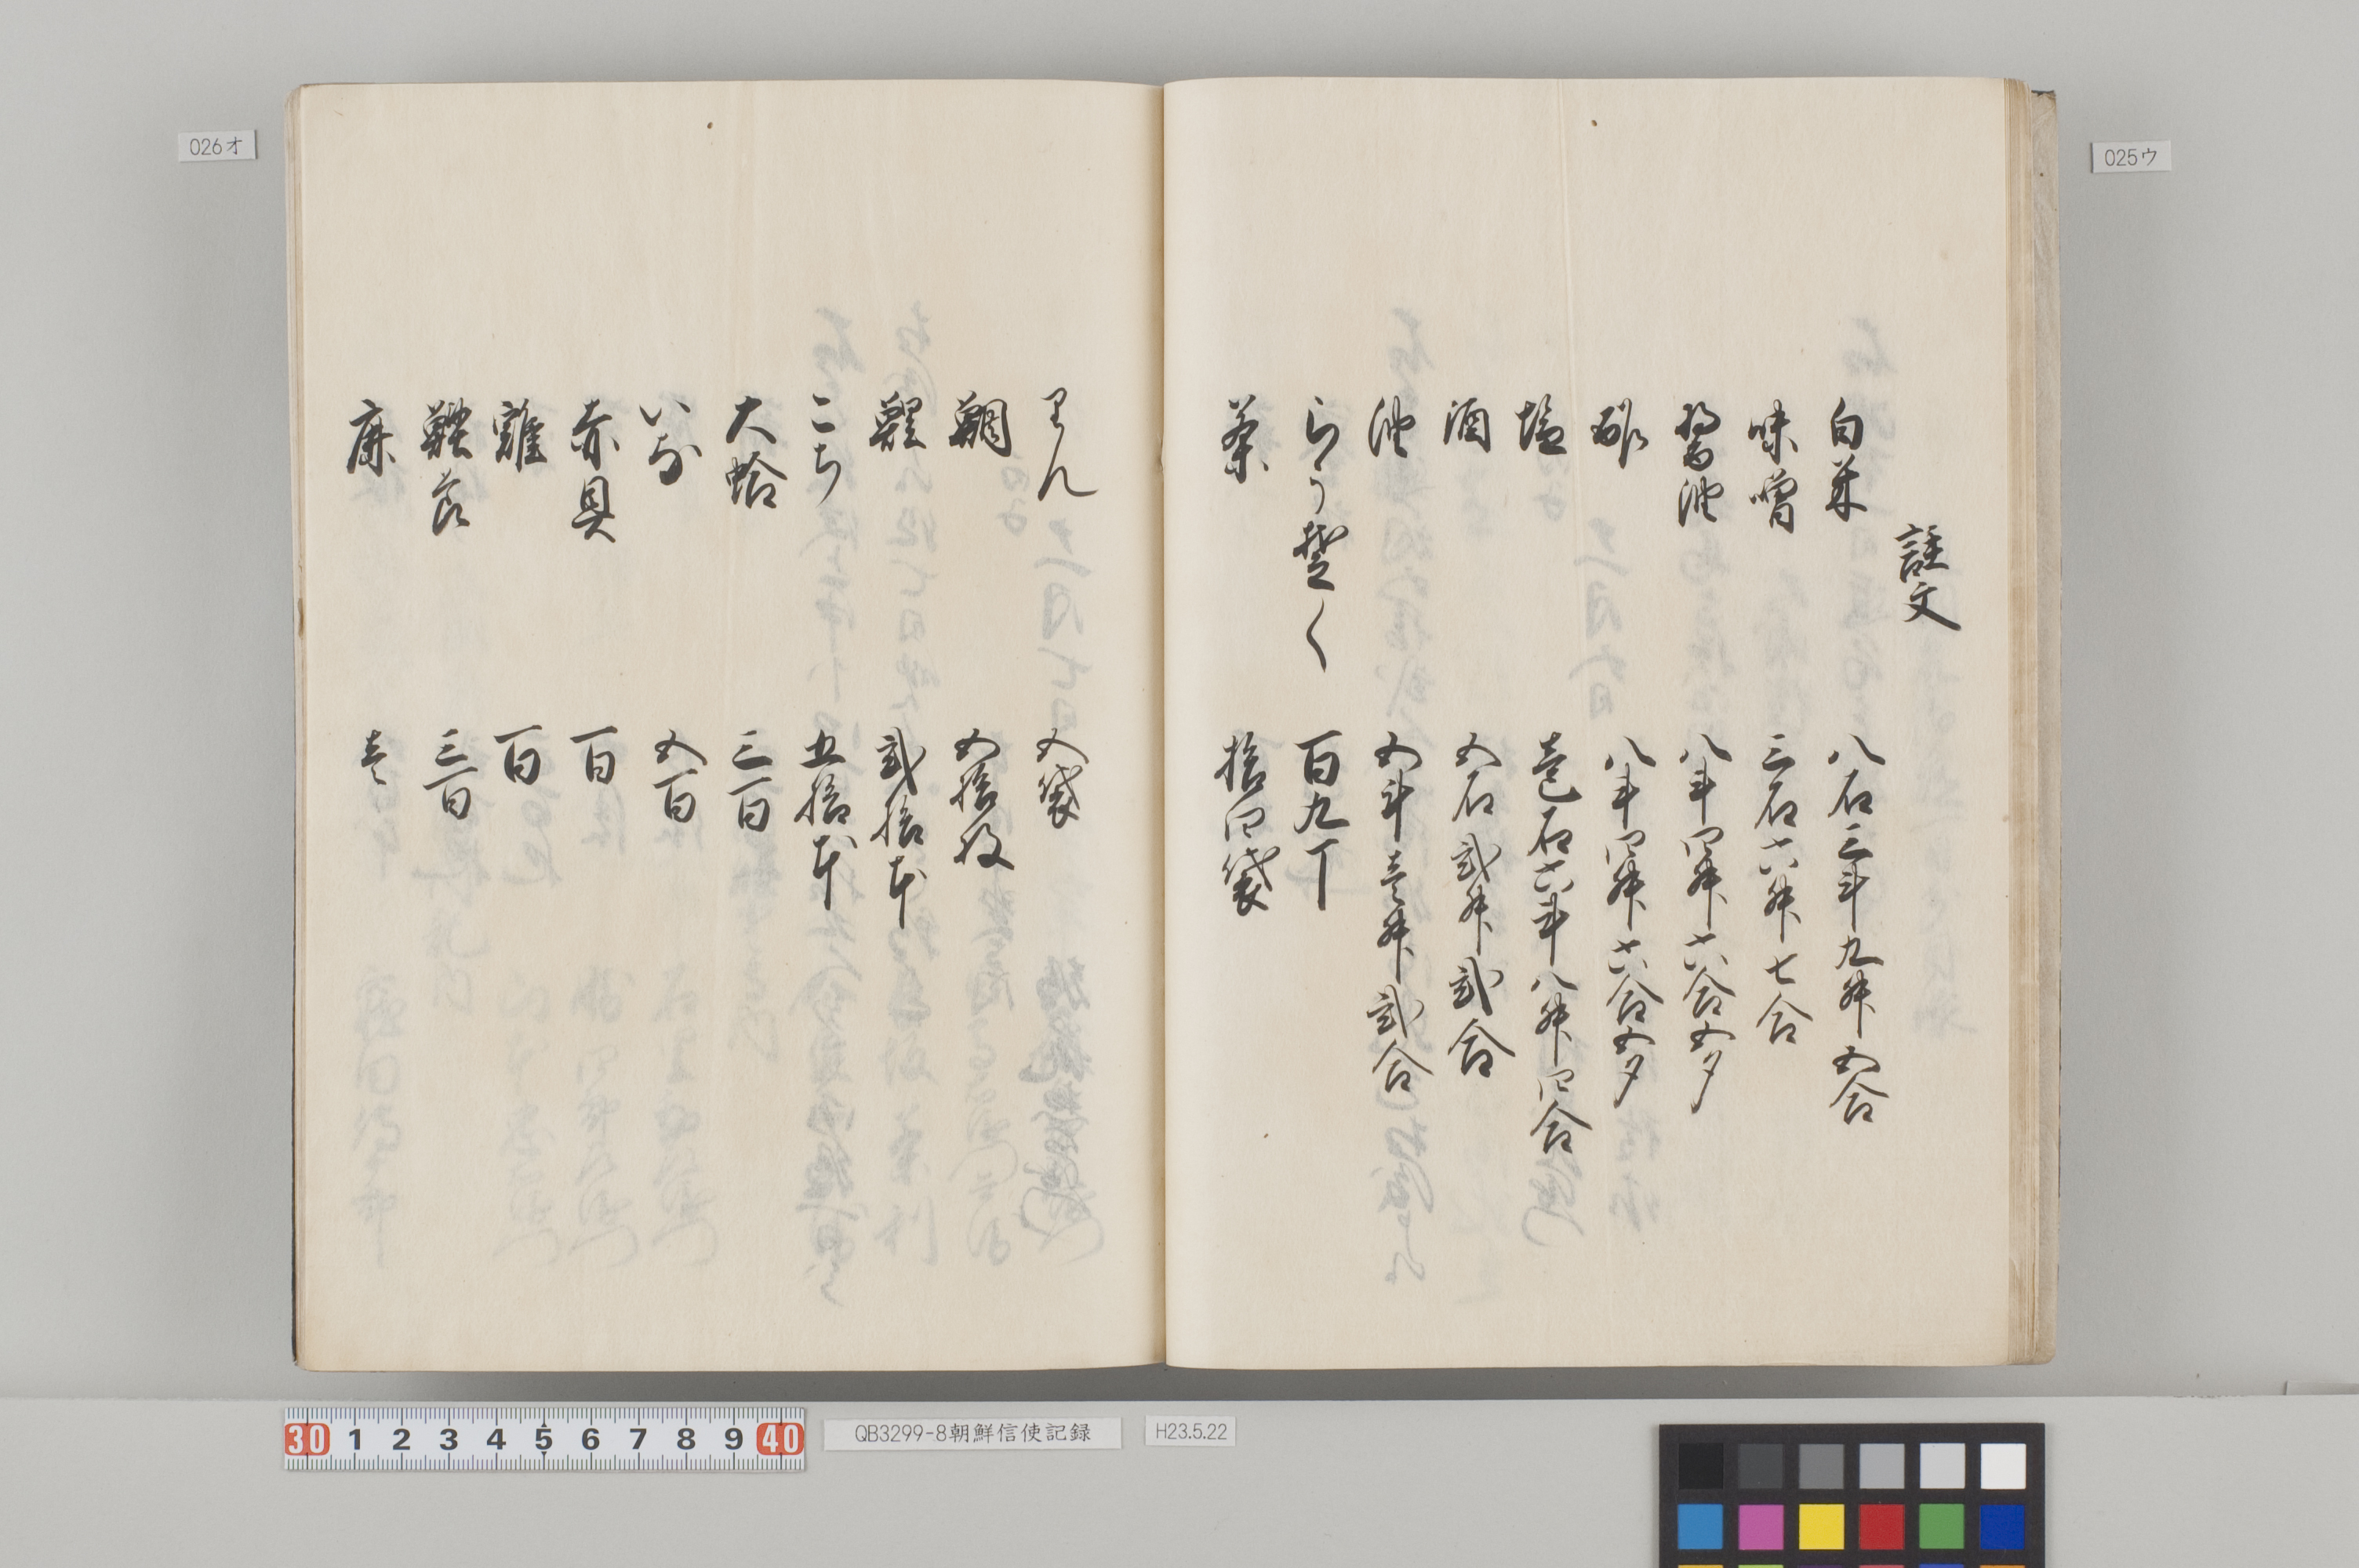 025ウ
註文
白米 八石三斗九舛五合
味噌 三石六舛七合
醤油 八斗四舛六合五夕
酢 八斗四舛六合五夕
塩 壱石六斗八舛四合
酒 五石弐舛弐合
油 五斗壱舛弐合
らうそく 百九丁
茶 拾四袋
026オ
五袋
鯛 五拾枚
鯉 弐拾本
こち 五拾本
大蛤 三百
いな 五百
赤貝 百
雞 百
雞卵 三百
鹿 壱
30 1 2 3 4 5 6 7 8 9 40
QB3299-8朝鮮信使記録
H23.5.22